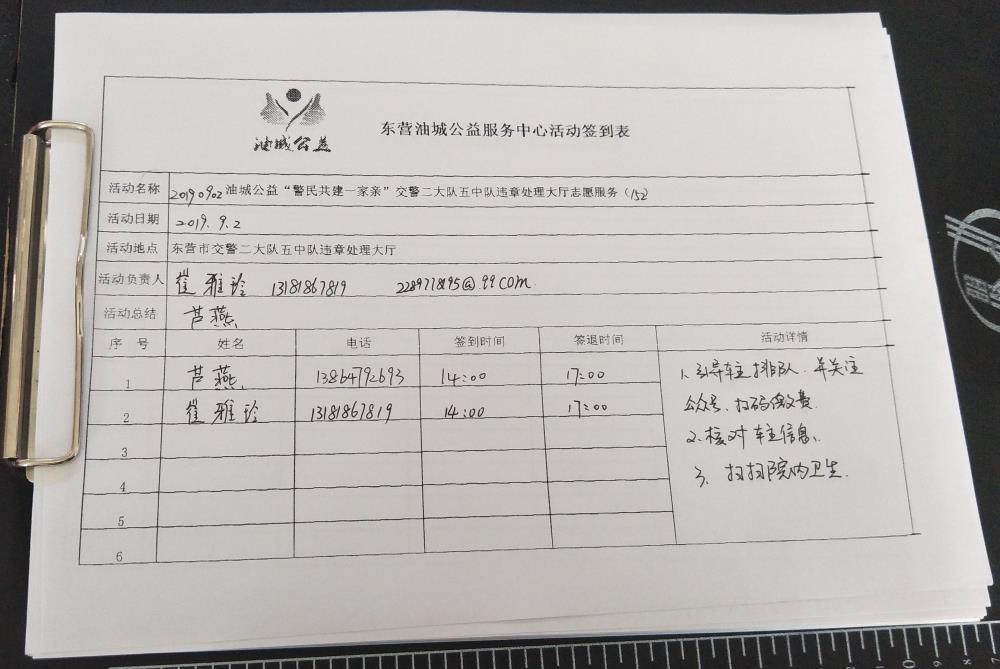 油城公益
东营油城公益服务中心活动签到表
活动名称 20190902油城公益“警民共建一家亲”交警二大队五中队违章处理大厅志愿服务（152）
活动日期 2019.9.2
活动地点 东营市交警二大队五中队违章处理大厅
活动负责人 崔雅玲 13181867819 2289778195@.qq com.
活动总结 芦燕
序 号 姓名 电话 签到时间 签退时间 活动详情
1 芦燕 13864792693 14:00 17:00
2 崔雅玲 13181867819 14:00 17:00
3
4
5
6
1、引导车主排队、并关注
公众号、扫码缴费.
2、核对车主信息、
3、打扫院内卫生.